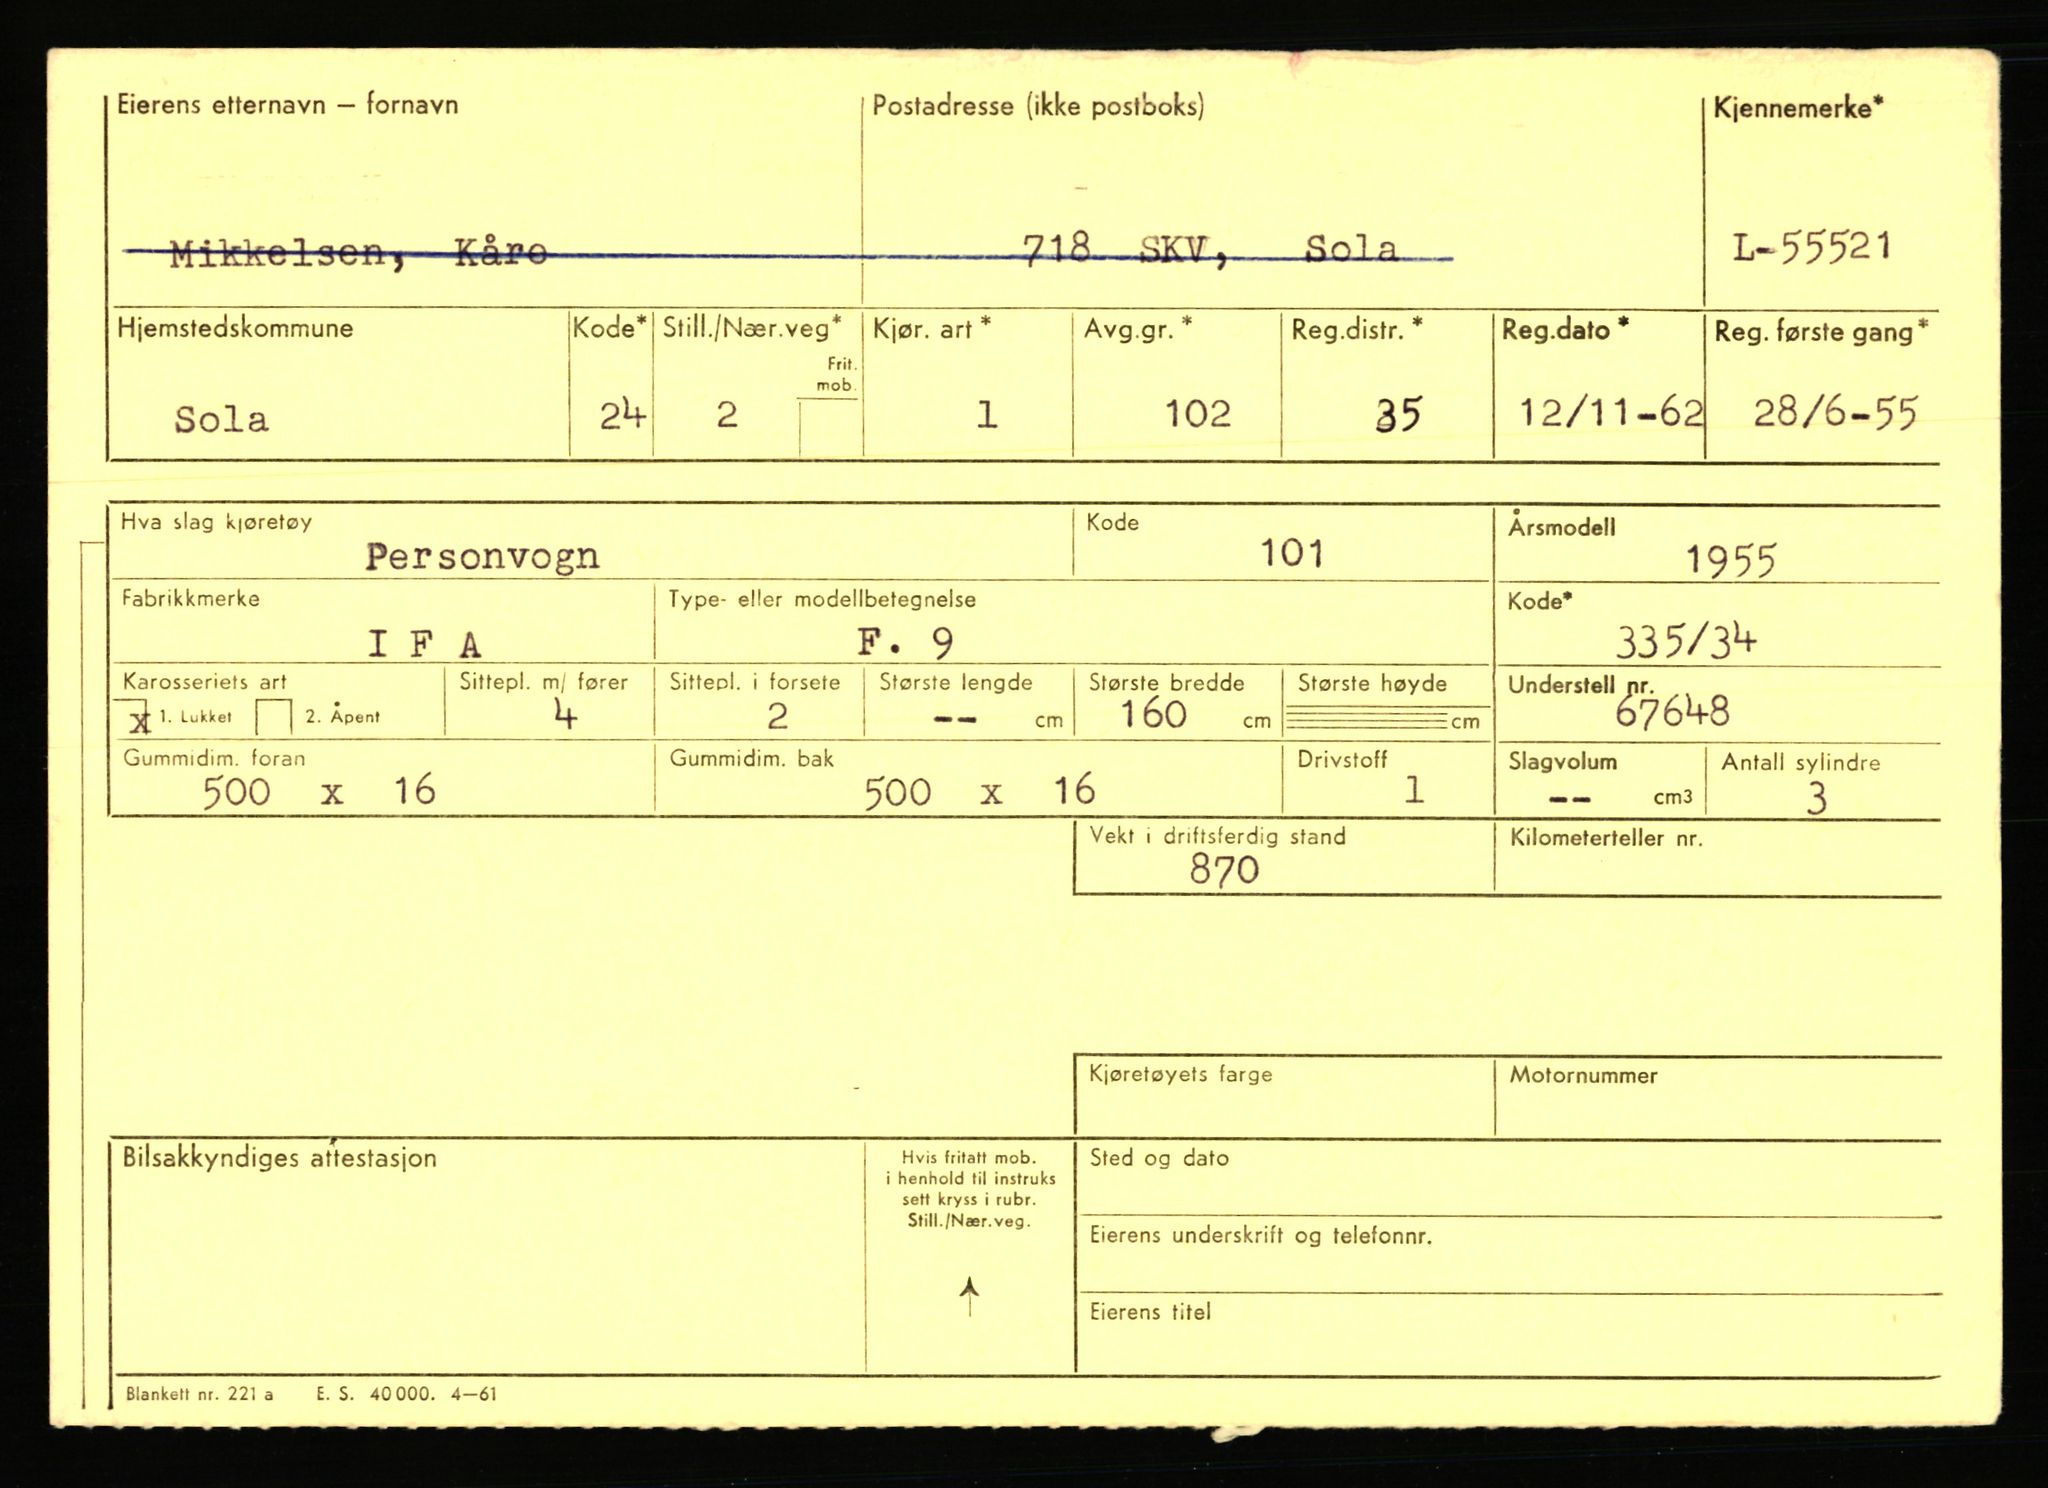 Eierens etternavn — fornavn
Postadresse (ikke postboks)
Kjennemerke*
Mikkelsen, Kåre
718 SKV, Sola
L-55521
Hjemstedskommune
Kode*
Still./Nær.veg*
Frit. mob.
Kjør. art *
Avg.gr. *
Reg.distr. *
Reg.dato *
Reg. første gang *
Sola
24
2
1
102
35
12/11-62
28/6-55
Hva slag kjøretøy
Personvogn
Kode
101
Årsmodell
1955
Fabrikkmerke
I F A
Type- eller modellbetegnelse
F. 9
Kode*
335/34
Karosseriets art
x 1. Lukket 2. Åpent
Sittepl. m/ fører
4
Sittepl. i forsete
2
Største lengde
-- cm
Største bredde
160 cm
Største høyde
cm
Understell nr.
67648
Gummidim. foran
500 x 16
Gummidim. bak
500 x 16
Drivstoff
1
Slagvolum
-- cm3
Antall sylindre
3
Vekt i driftsferdig stand
870
Kilometerteller nr.
Kjøretøyets farge
Motornummer
Bilsakkyndiges attestasjon
Hvis fritatt mob.
i henhold til instruks
sett kryss i rubr.
Still./Nær.veg.
Sted og dato
Eierens underskrift og telefonnr.
Eierens titel
Blankett nr. 221 a E. S. 40 000. 4—61